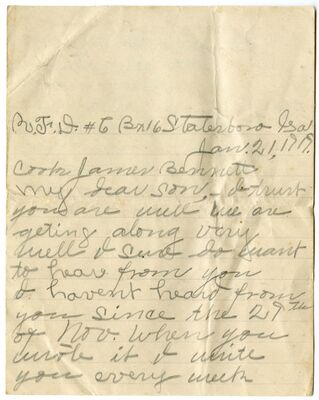 R.F.D. #6 Bx16 Statesboro Ga
Jan. 21, 1919.
Cook James Bennett
My dear son, I trust
you are well we are
geting along very
well I sure do want
to hear from you
I havent heard from
you since the 29th
of Nov. when you
wrote it I write
you every week